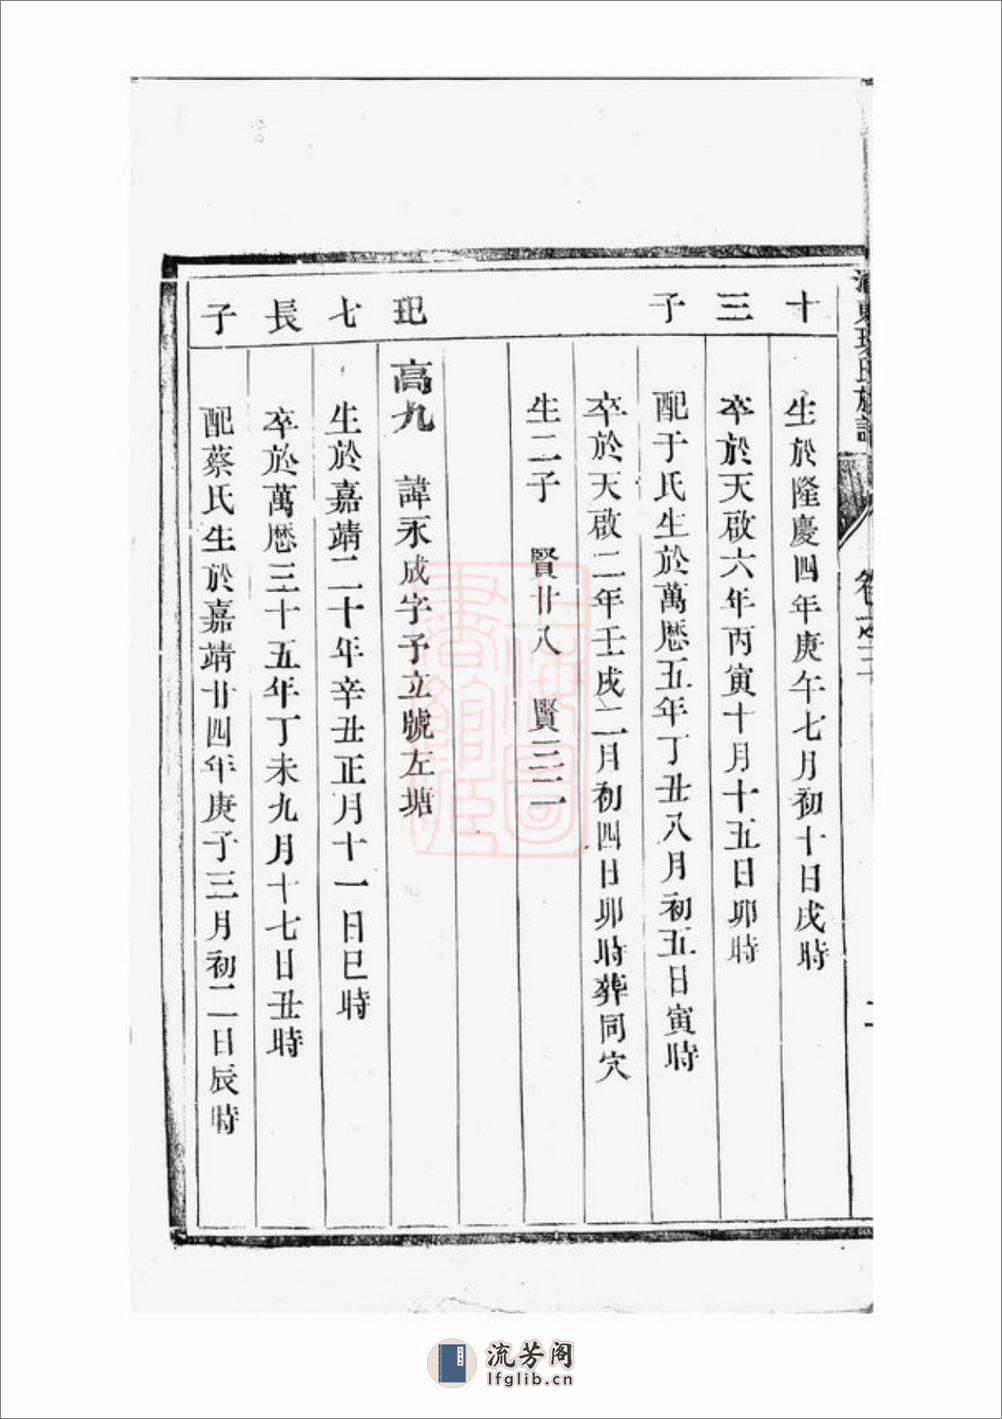 氏族譜
卷之三
十 生於隆慶四年庚午七月初十日戌時
三 卒於天啟六年丙寅十月十五日卯時
子 配于氏生於萬厯五年丁丑八月初五日寅時
卒於天啟二年壬戌二月初四日卯時葬同穴
生二子 賢廿八 賢三二
玘 高九 諱永成字予立號左塘
七 生於嘉靖二十年辛丑正月十一日巳時
長 卒於萬厯三十五年丁未九月十七日丑時
子 配蔡氏生於嘉靖廿四年庚子三月初二日辰時
上海圖書館藏
流芳阁
lfglib.cn